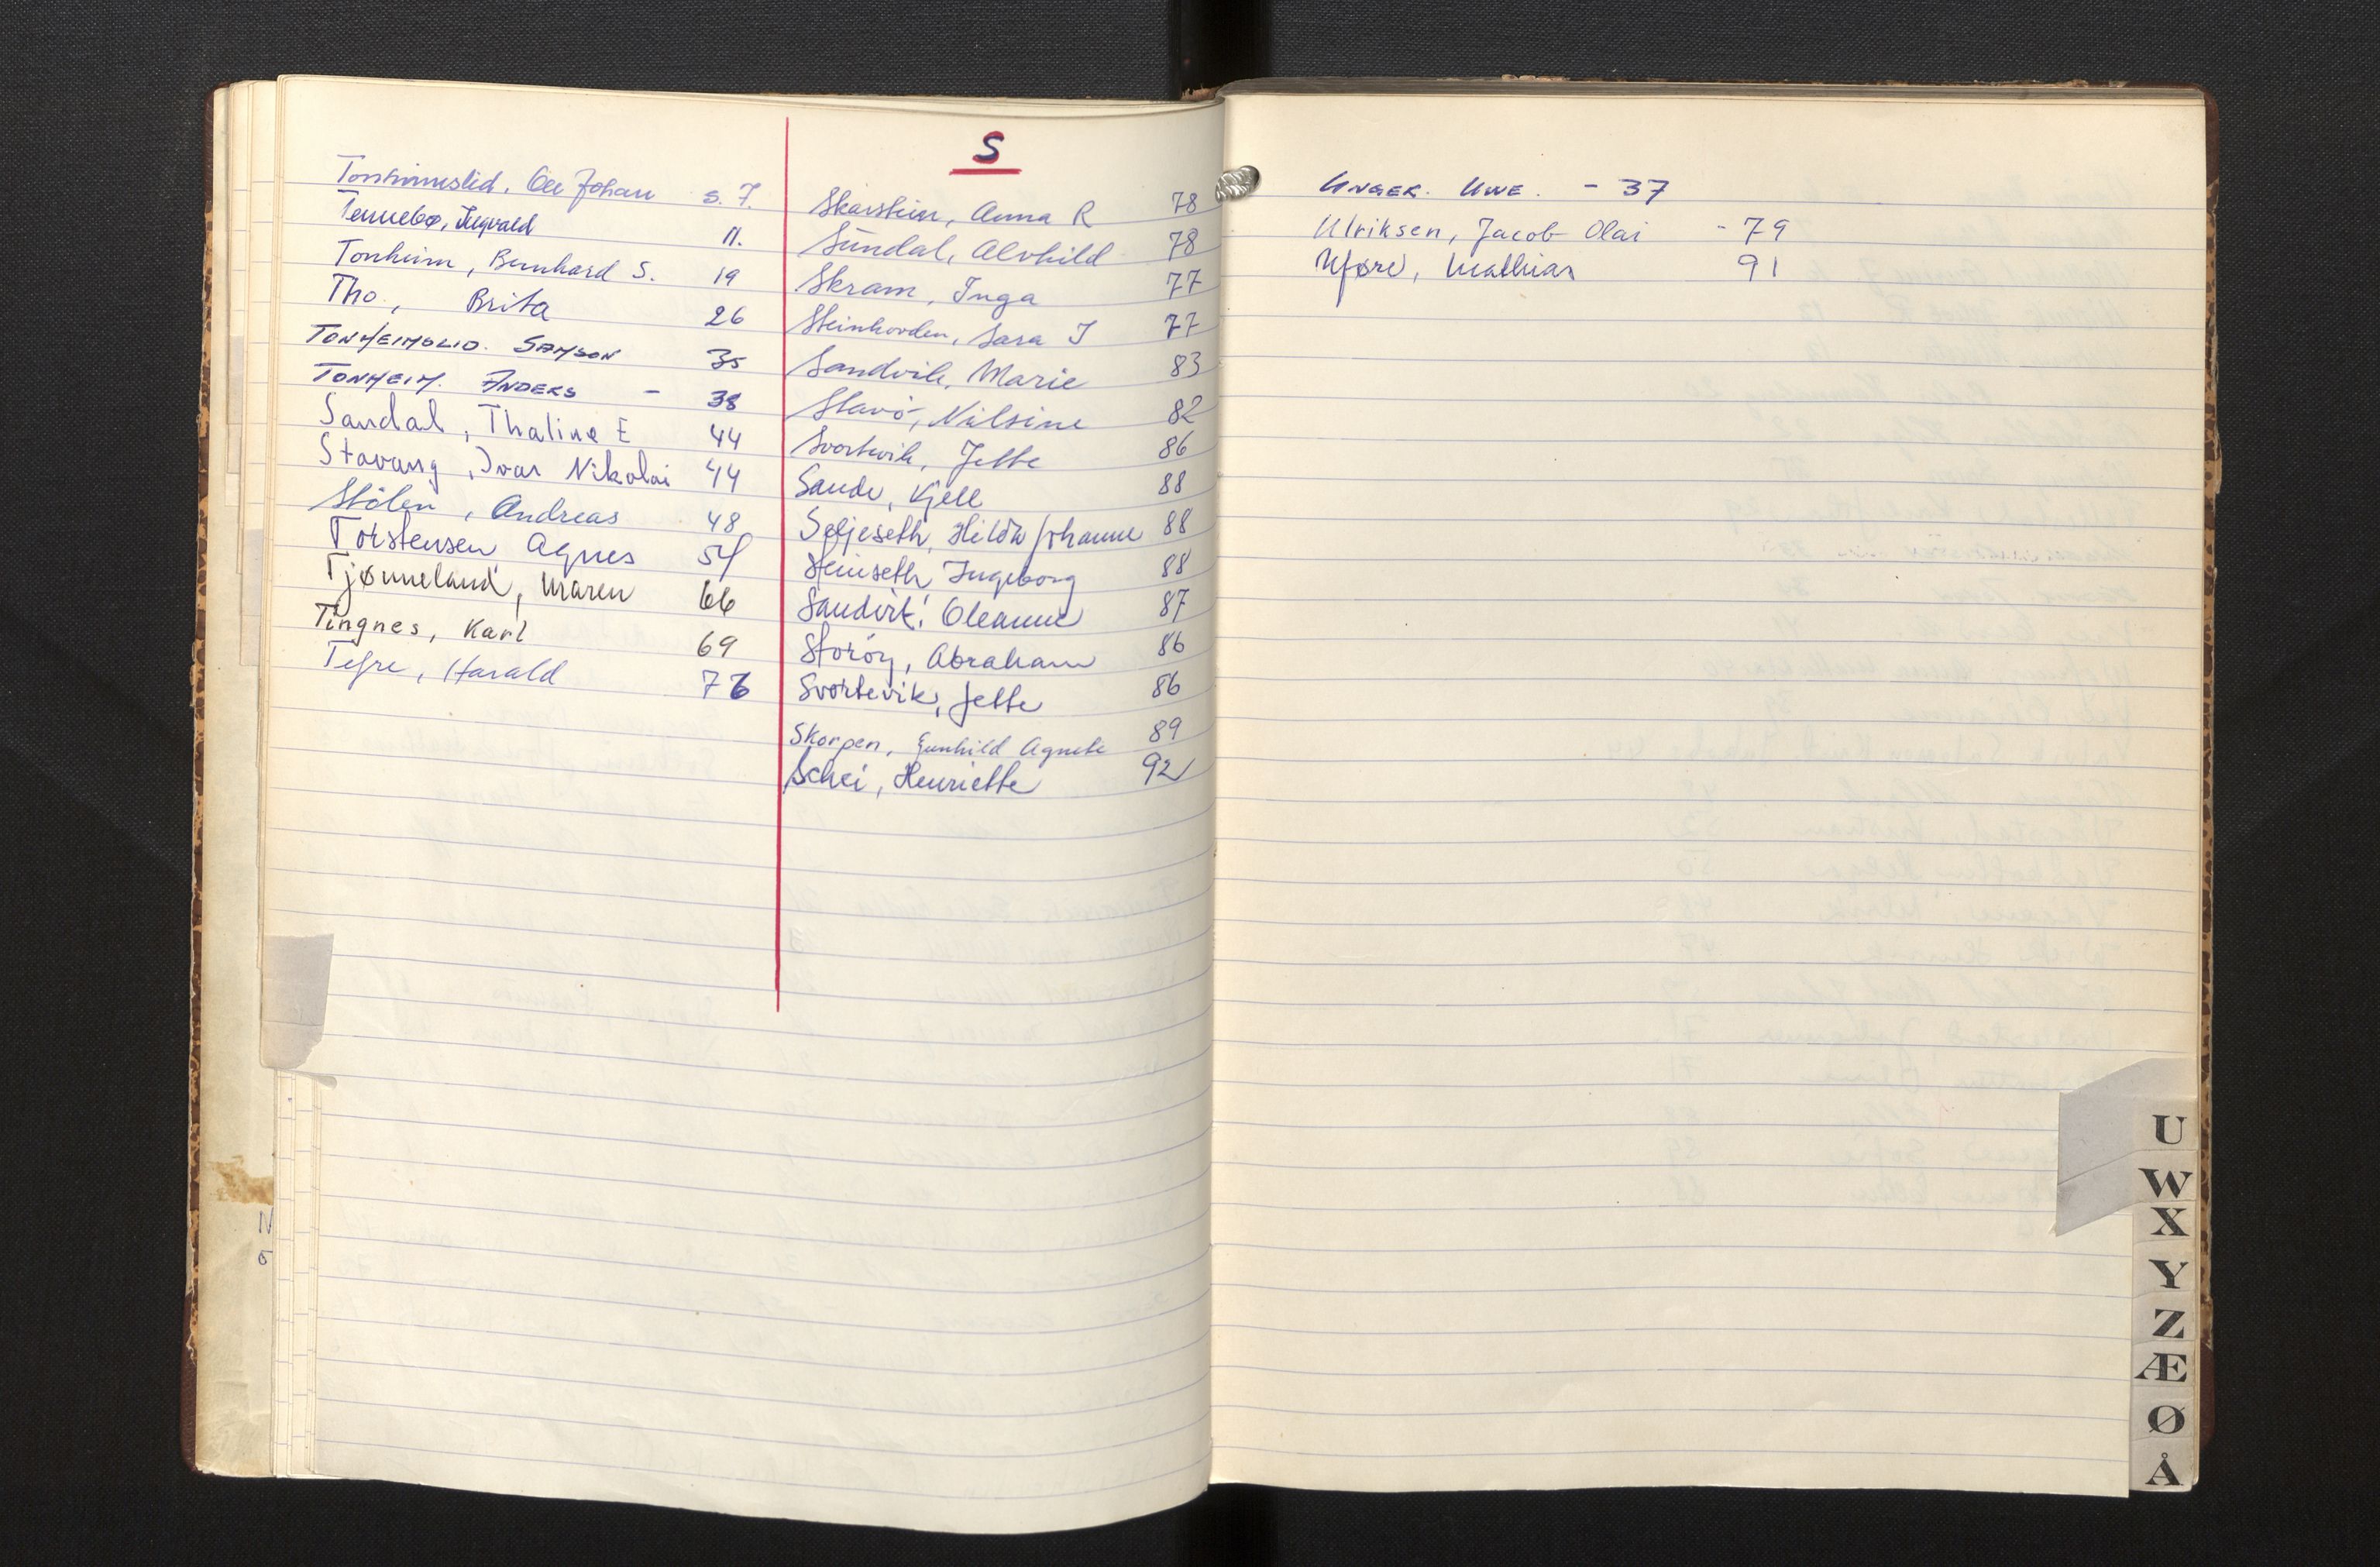 Tonheimslid, Ole Johan s. 7.
Tennebø, Ingvald 11.
Tonheim, Bernhard S. 19
Tho, Brita 26
TONHEIMSLID. SAMSON 35
TONHEIM. ANDERS - 38
Sandal, Thaline E 44
Stavang, Ivar Nikolai 44
Stölen, Andreas 48
Torstensen, Agnes 54
Tjønneland, Maren 66
Tingnes, Karl 69
Tefre, Harald 76
S
Skarstein, Anna R 78
Sundal, Alvhild 78
Skram, Inga 77
Steinhovden, Sara J 77
Sandvik, Marie 83
Stavö, Nilsine 82
Svortevik, Jette 86
Sande, Kjell 88
Seljeseth, Hilda Johanne 88
Heinseth, Ingeborg 88
Sandvik, Oleanne 87
Storöy, Abraham 86
Svortevik, Jette 86
Skorpen, Gunhild Agnete 89
Schei, Henriette 92
UNGER. UWE. - 37
Ulriksen, Jacob Olai - 79
Mathias 91
U
W
X
Y
Z
Æ
Ø
Å
N